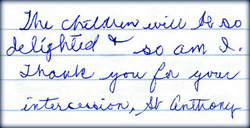 The children will be so
delighted & so am I.
Thank you for your
intercession, St Anthony